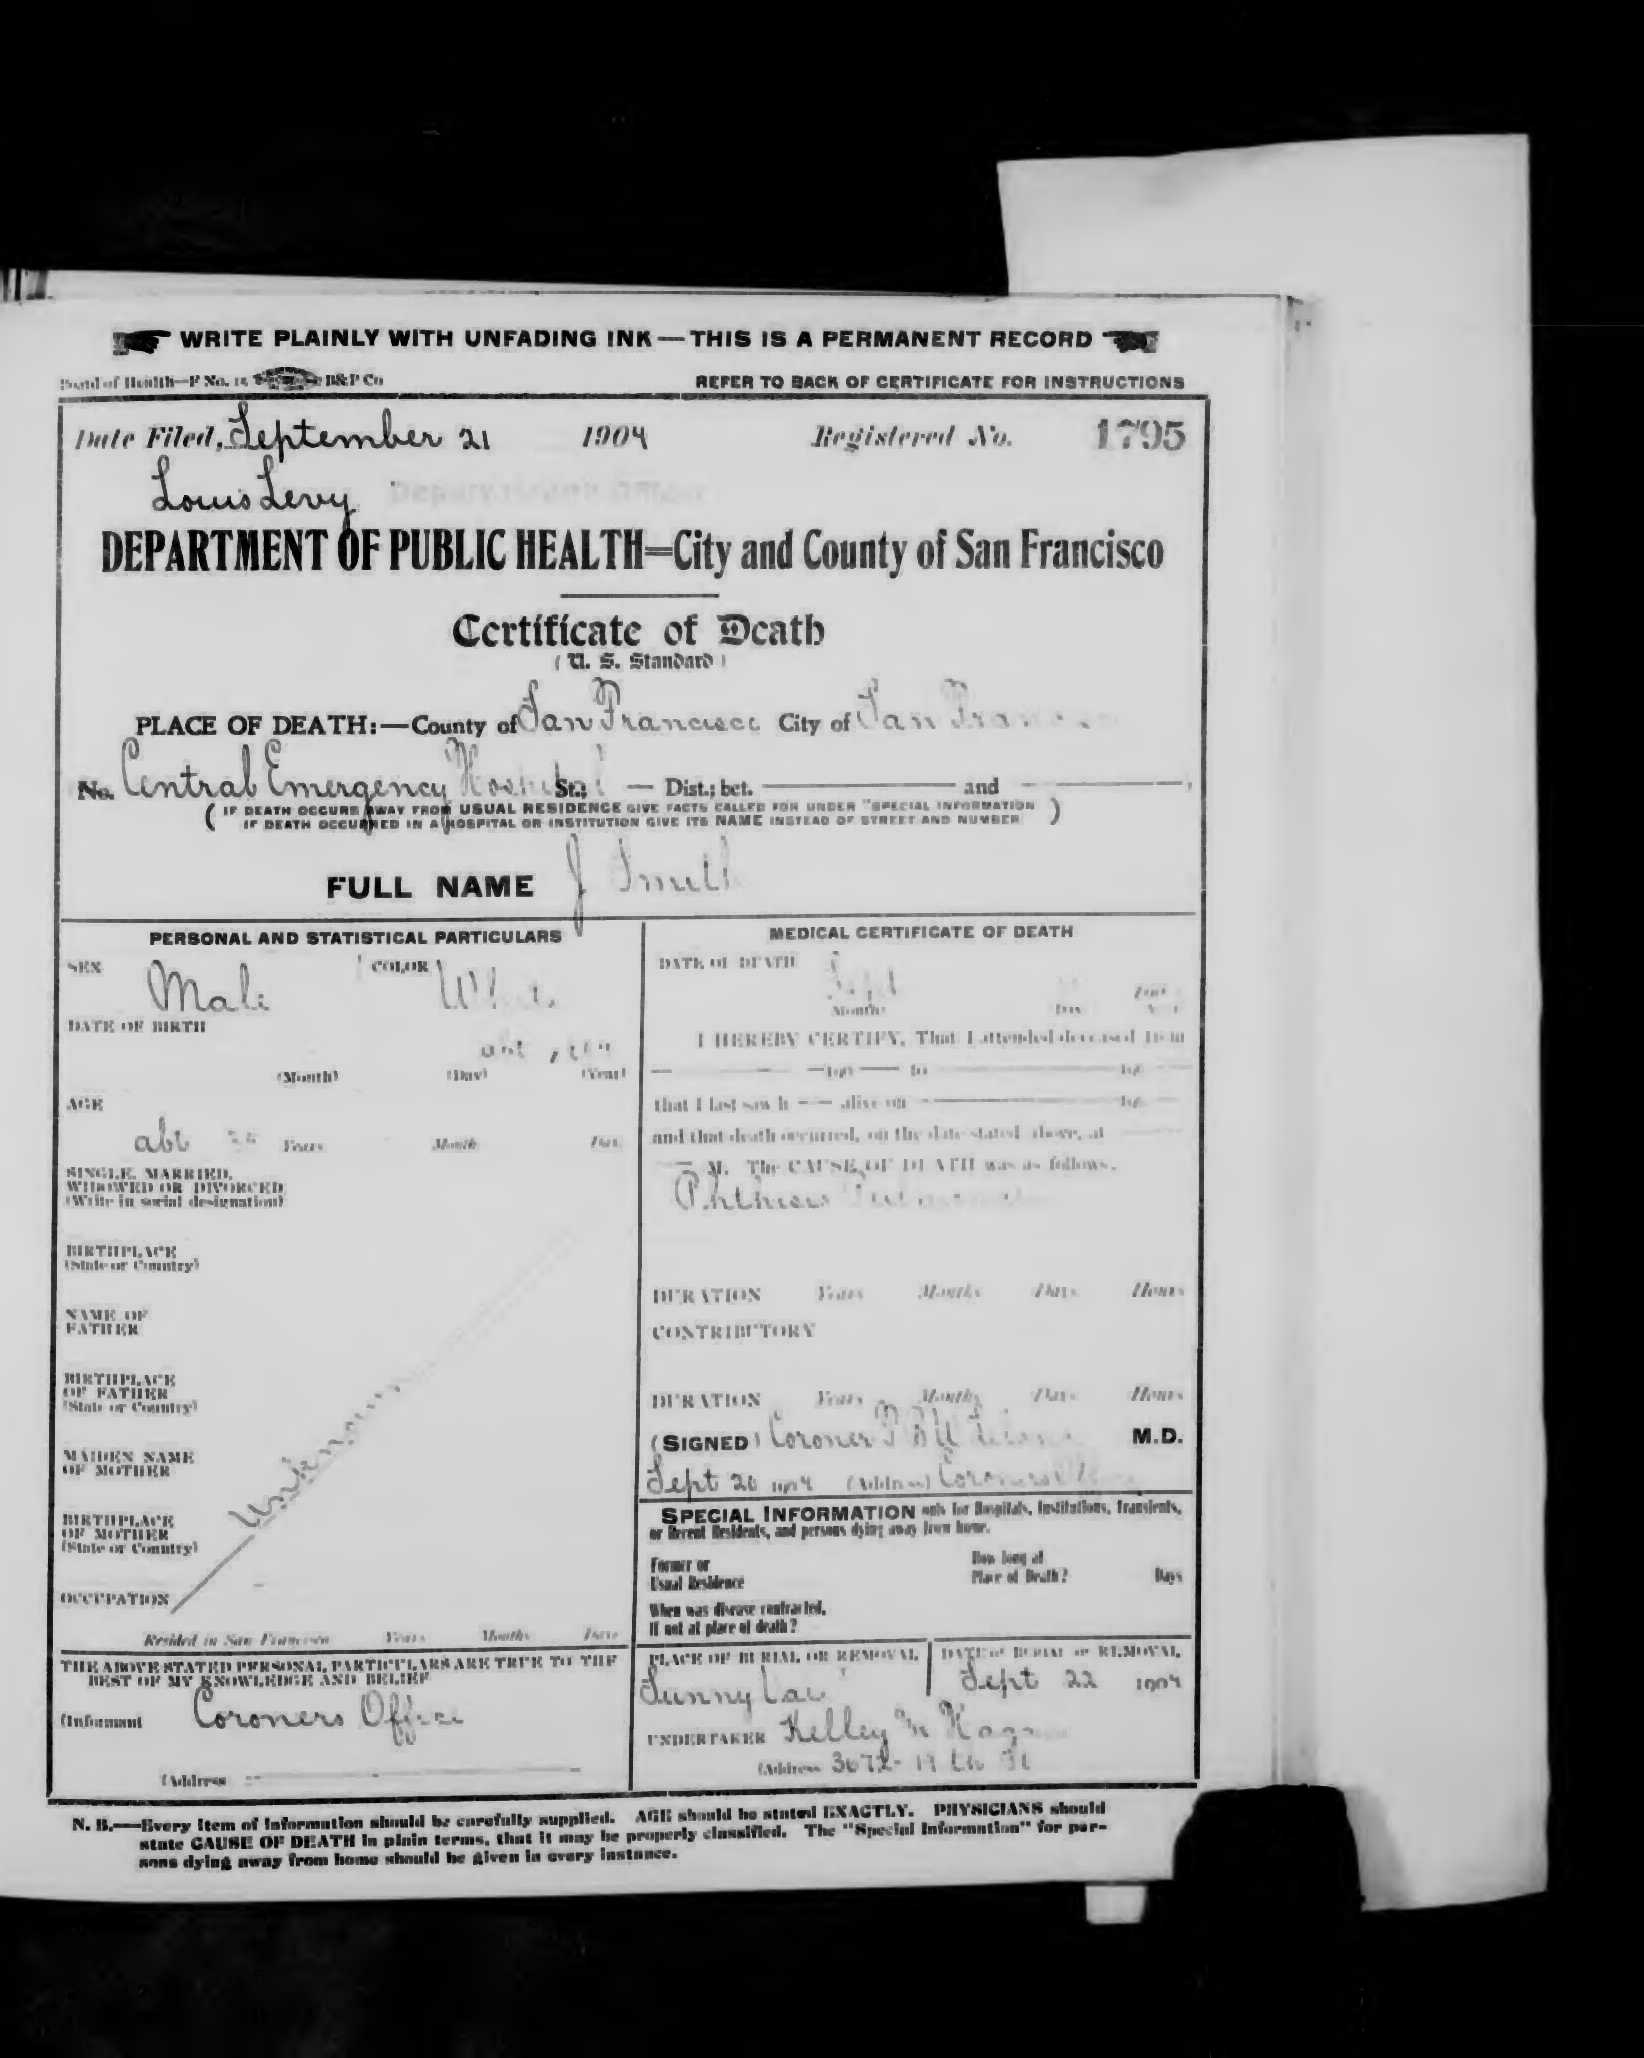 WRITE PLAINLY WITH UNFADING INK — THIS IS A PERMANENT RECORD
Board of Health—F No. 15 B&P Co
REFER TO BACK OF CERTIFICATE FOR INSTRUCTIONS
Date Filed, September 21 1904 Registered No. 1795
Louis Levy Deputy Health Officer
DEPARTMENT OF PUBLIC HEALTH=City and County of San Francisco
Certificate of Death
(U. S. Standard)
PLACE OF DEATH:—County of San Francisco City of San Francisco
No. Central Emergency Hospital St.; — Dist.; bet. — and —
(IF DEATH OCCURS AWAY FROM USUAL RESIDENCE GIVE FACTS CALLED FOR UNDER "SPECIAL INFORMATION
IF DEATH OCCURRED IN A HOSPITAL OR INSTITUTION GIVE ITS NAME INSTEAD OF STREET AND NUMBER)
FULL NAME J Smith
PERSONAL AND STATISTICAL PARTICULARS
SEX Male COLOR White
DATE OF BIRTH
abt
(Month) (Day) (Year)
AGE
abt Years Month Days
SINGLE, MARRIED,
WIDOWED OR DIVORCED
(Write in social designation)
BIRTHPLACE
(State or Country)
NAME OF
FATHER
BIRTHPLACE
OF FATHER
(State or Country)
MAIDEN NAME
OF MOTHER
BIRTHPLACE
OF MOTHER
(State or Country)
Unknown
OCCUPATION
Resided in San Francisco Years Months Days
THE ABOVE STATED PERSONAL PARTICULARS ARE TRUE TO THE
BEST OF MY KNOWLEDGE AND BELIEF
(Informant Coroners Office
(Address
MEDICAL CERTIFICATE OF DEATH
DATE OF DEATH
Sept 190
Month Day Year
I HEREBY CERTIFY, That I attended deceased from
— 190 — to — 190 —
that I last saw h — alive on — 190
and that death occurred, on the date stated above, at —
— M. The CAUSE OF DEATH was as follows.
Phthisis Pulmonalis
DURATION Years Months Days Hours
CONTRIBUTORY
DURATION Years Months Days Hours
(SIGNED) Coroner M.D.
Sept 20 1904 (Address) Coroners Office
SPECIAL INFORMATION only for Hospitals, Institutions, Transients,
or Recent Residents, and persons dying away from home.
Former or
Usual Residence
How long at
Place of Death? Days
When was disease contracted,
If not at place of death?
PLACE OF BURIAL OR REMOVAL DATE OF BURIAL or REMOVAL
Sunny Sept 22 1904
UNDERTAKER Kelley
(Address 3672- 19 th St
N. B.—Every item of information should be carefully supplied. AGE should be stated EXACTLY. PHYSICIANS should
state CAUSE OF DEATH in plain terms, that it may be properly classified. The "Special Information" for per-
sons dying away from home should be given in every instance.